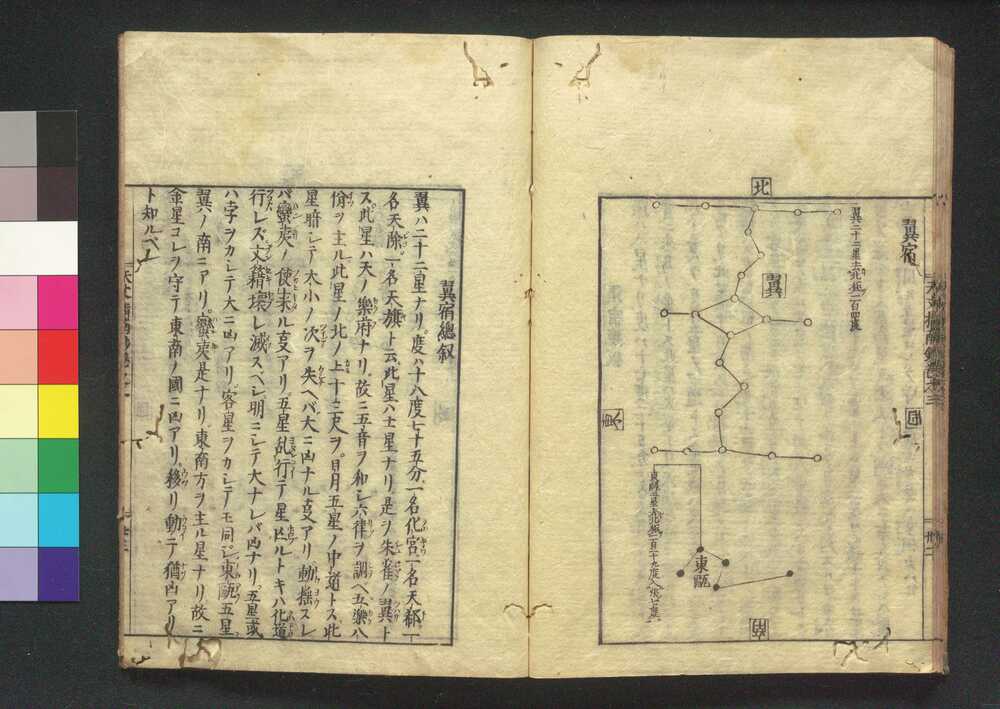 翼宿
北
翼二十二星去北極一百四度
翼
東甌
翼宿總叙
翼ハ二十二星ナリ度ハ十八度七十五分一名化宮一名天都一
名天除一名天旗ト云此星ハ土星ナリ是ヲ朱雀ノ翼ト
ス此星ハ天ノ樂府ナリ故ニ五音ヲ和シ六律ヲ調ベ五樂八
佾ヲ主ル此星ノ北ノ上十三尺ヲ日月五星ノ中道トス此
星暗シテ大小ノ次ヲ失ヘバ大ニ凶ナル支アリ動揺スレ
バ蠻夷ノ使来ル支アリ五星乱行テ星凶ルトキハ化道
行レズ文籍壊レ滅スベシ明ニシテ大ナレバ凶ナリ五星或
ハ字ヲカシテ大ニ凶アリ客星ヲカシテモ同シ東甌五星
翼ノ南ニアリ蠻夷是ナリ東南方ヲ主ル星ナリ故ニ
金星コレヲ守テ東南ノ國ニ凶アリ移リ動ニテ猶凶アリ
ト知ルベシ